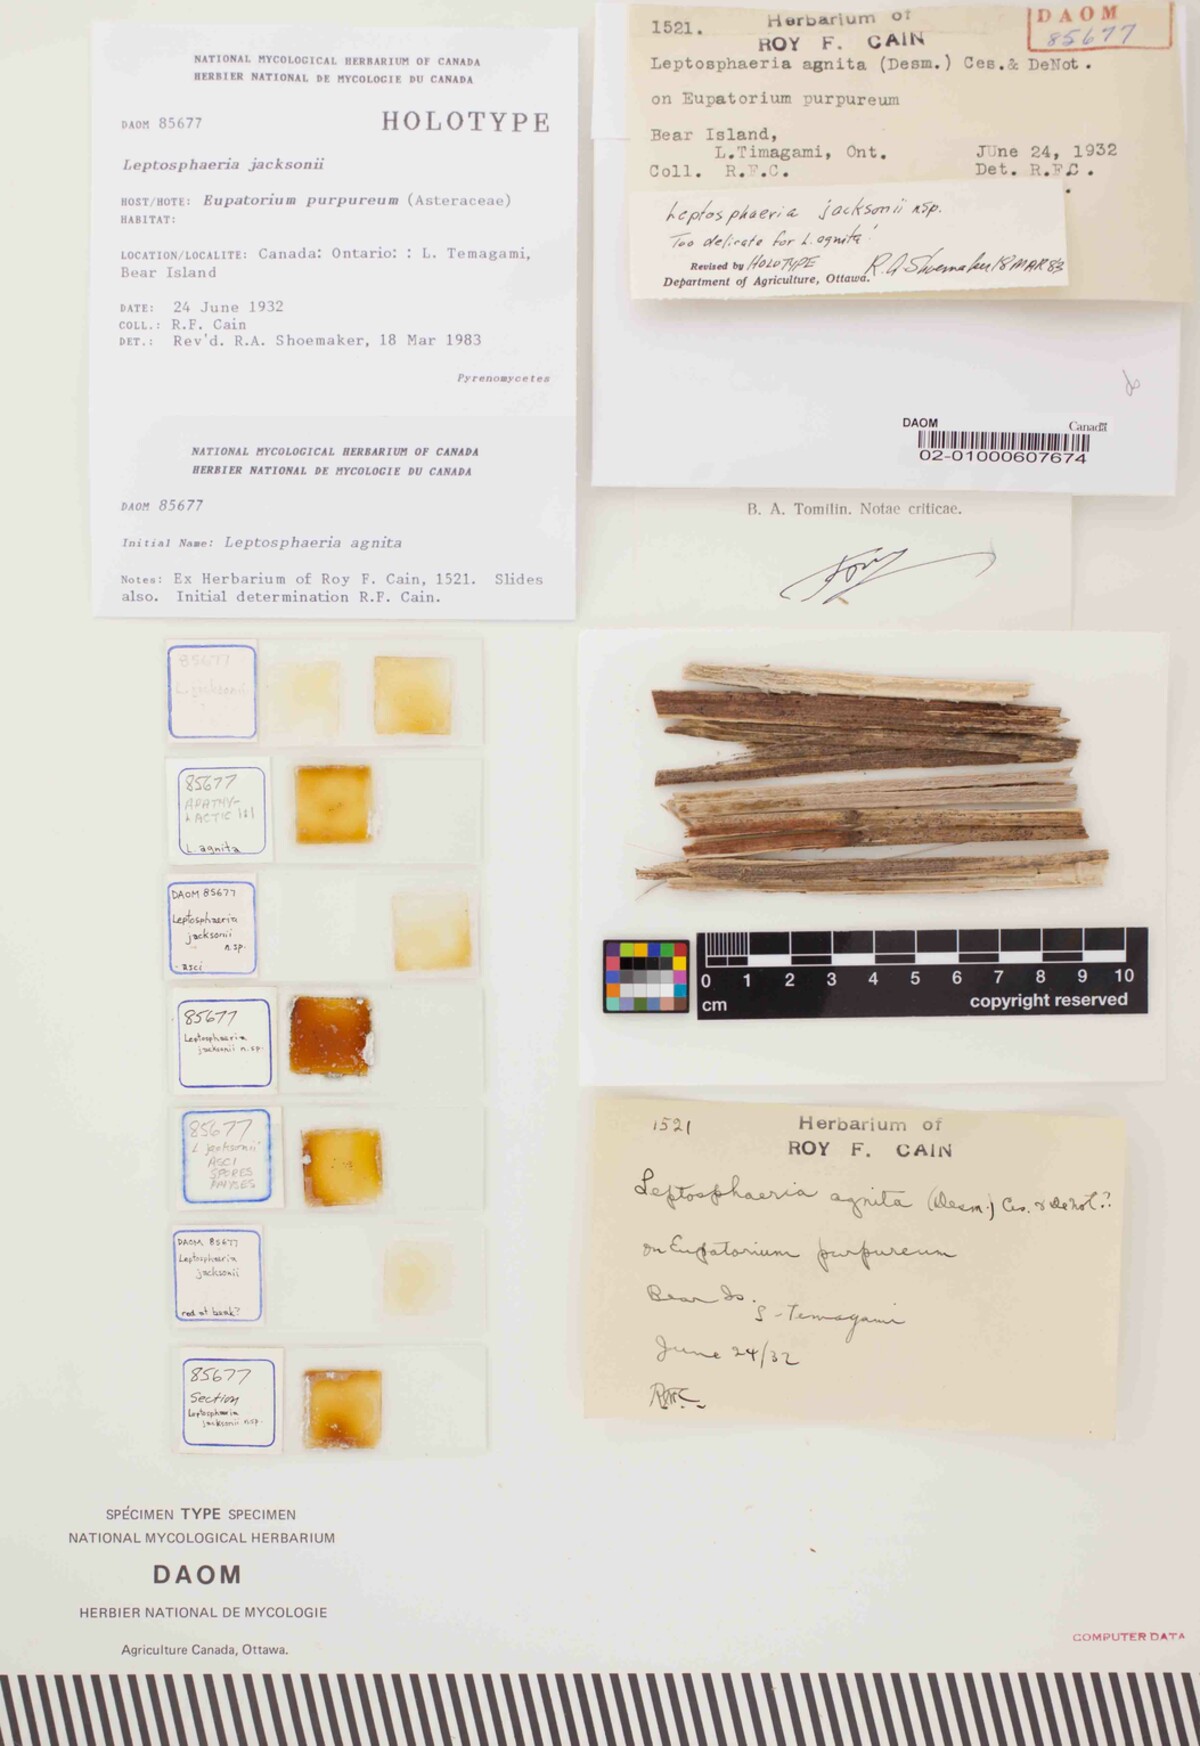 NATIONAL MYCOLOGICAL HERBARIUM OF CANADA
HERBIER NATIONAL DE MYCOLOGIE DU CANADA
DAOM 85677 HOLOTYPE
Leptosphaeria jacksonii
HOST/HOTE: Eupatorium purpureum (Asteraceae)
HABITAT:
LOCATION/LOCALITE: Canada: Ontario: : L. Temagami,
Bear Island
DATE: 24 June 1932
COLL.: R.F. Cain
DET.: Rev'd. R.A. Shoemaker, 18 Mar 1983
Pyrenomycetes
NATIONAL MYCOLOGICAL HERBARIUM OF CANADA
HERBIER NATIONAL DE MYCOLOGIE DU CANADA
DAOM 85677
Initial Name: Leptosphaeria agnita
Notes: Ex Herbarium of Roy F. Cain, 1521. Slides
also. Initial determination R.F. Cain.
1521. Herbarium of
ROY F. CAIN
DAOM
85677
Leptosphaeria agnita (Desm.) Ces.& DeNot.
on Eupatorium purpureum
Bear Island,
L.Timagami, Ont. June 24, 1932
Coll. R.F.C. Det. R.F.C.
Leptosphaeria jacksonii n sp.
Too delicate for L. agnita!
Revised by HOLOTYPE R.A. Shoemaker 18 MAR 83
Department of Agriculture, Ottawa.
DAOM Canada
02-01000607674
B. A. Tomilin. Notae criticae.
85677
L. jacksonii
85677
L. agnita
DAOM 85677
Leptosphaeria
jacksonii
n.sp.
asci
85677
Leptosphaeria
jacksonii n.sp.
85677
L jacksonii
ASCI
SPORES
DAOM 85677
Leptosphaeria
jacksonii
85677
Section
Leptosphaeria
jacksonii n.sp.
0 1 2 3 4 5 6 7 8 9 10
cm copyright reserved
1521 Herbarium of
ROY F. CAIN
Leptosphaeria agnita (Desm.) Ces. & DeNot.?
on Eupatorium purpureum
Bear Is.
Temagami
June 24/32
RFC
SPÉCIMEN TYPE SPECIMEN
NATIONAL MYCOLOGICAL HERBARIUM
DAOM
HERBIER NATIONAL DE MYCOLOGIE
Agriculture Canada, Ottawa.
COMPUTER DATA